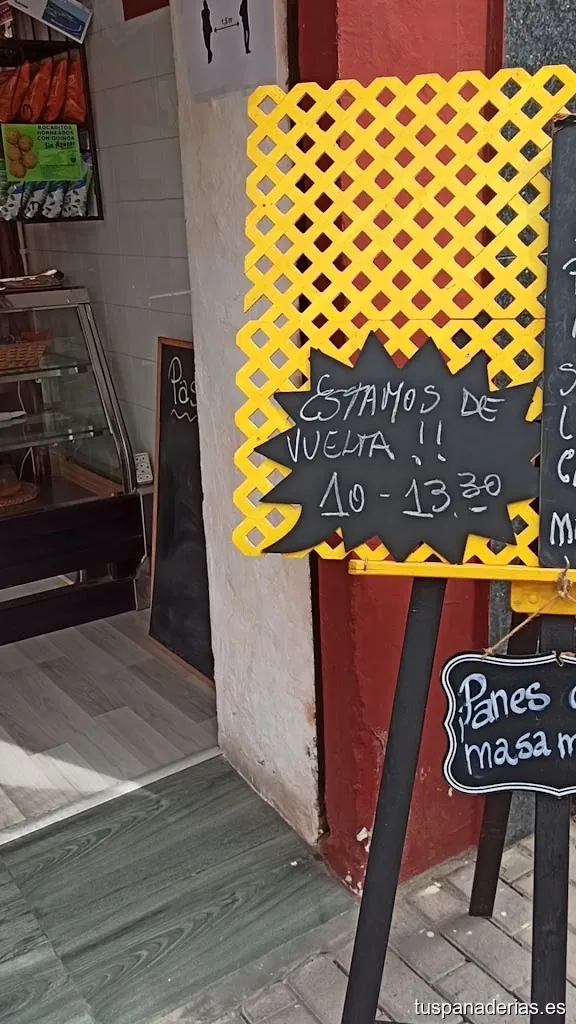 1,5 m
BOCADITOS
HORNEADOS
CON QUINOA
Sin Azúcar
Pas
ESTAMOS DE
VUELTA !!
10 - 13.30
Panes
masa m
tuspanaderias.es